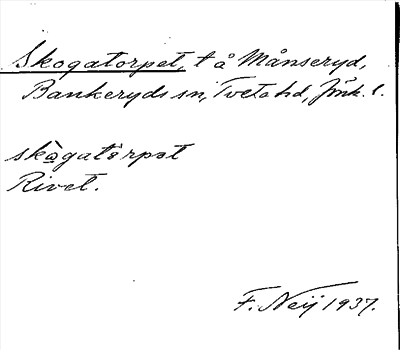 Skogatorpet, t å Månseryd,
Bankeryds sn, Tveta hd, Jönk. l.
skògatòrpət
Rivet.
F. Neij 1937.